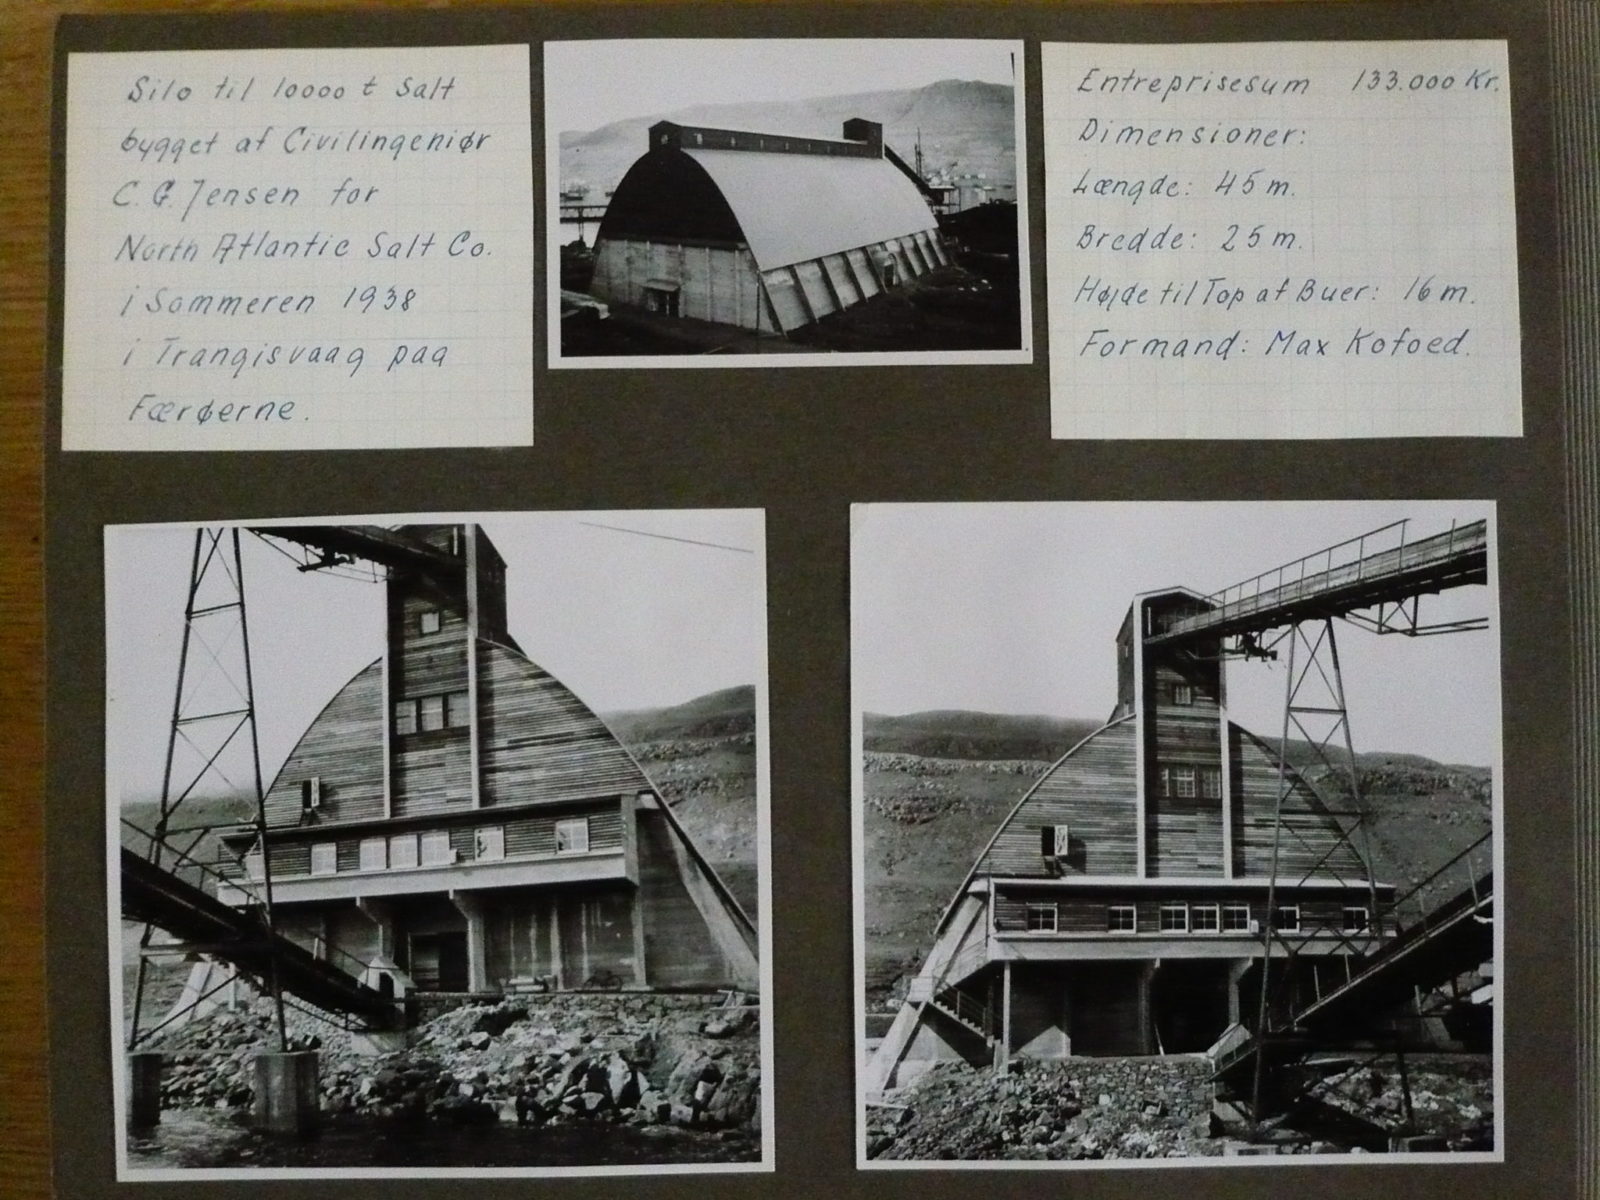 Silo til 10000 t Salt
bygget af Civilingeniør
C. G. Jensen for
North Atlantic Salt Co.
i Sommeren 1938
i Trangisvaag paa
Færøerne.
Entreprisesum 133.000 Kr.
Dimensioner:
Længde: 45 m.
Bredde: 25 m.
Højde til Top af Buer: 16 m.
Formand: Max Kofoed.